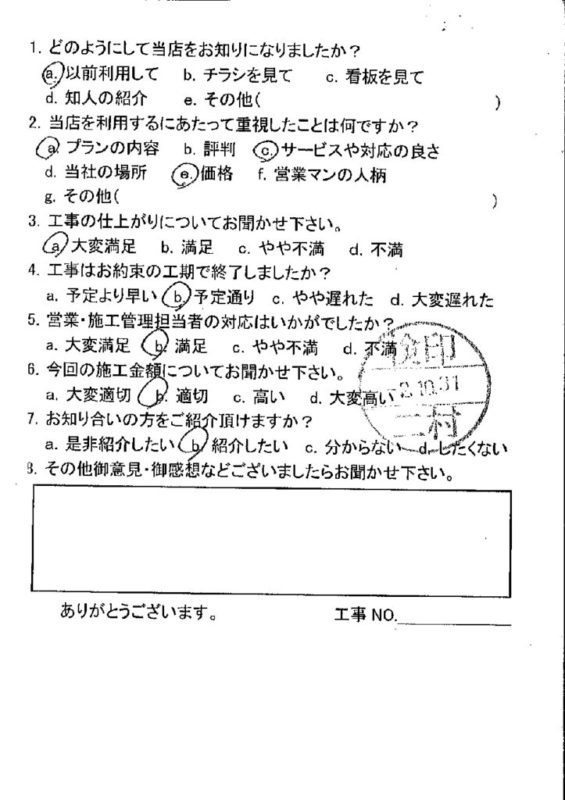 1. どのようにして当店をお知りになりましたか？
a. 以前利用して b. チラシを見て c. 看板を見て
d. 知人の紹介 e. その他( )
2. 当店を利用するにあたって重視したことは何ですか？
a. プランの内容 b. 評判 c. サービスや対応の良さ
d. 当社の場所 e. 価格 f. 営業マンの人柄
g. その他( )
3. 工事の仕上がりについてお聞かせ下さい。
a. 大変満足 b. 満足 c. やや不満 d. 不満
4. 工事はお約束の工期で終了しましたか？
a. 予定より早い b. 予定通り c. やや遅れた d. 大変遅れた
5. 営業・施工管理担当者の対応はいかがでしたか？
a. 大変満足 b. 満足 c. やや不満 d. 不満
検印
6. 今回の施工金額についてお聞かせ下さい。
a. 大変適切 b. 適切 c. 高い d. 大変高い
2.10.31
7. お知り合いの方をご紹介頂けますか？
二村
a. 是非紹介したい b. 紹介したい c. 分からない d. したくない
8. その他御意見・御感想などございましたらお聞かせ下さい。
ありがとうございます。 工事 NO.